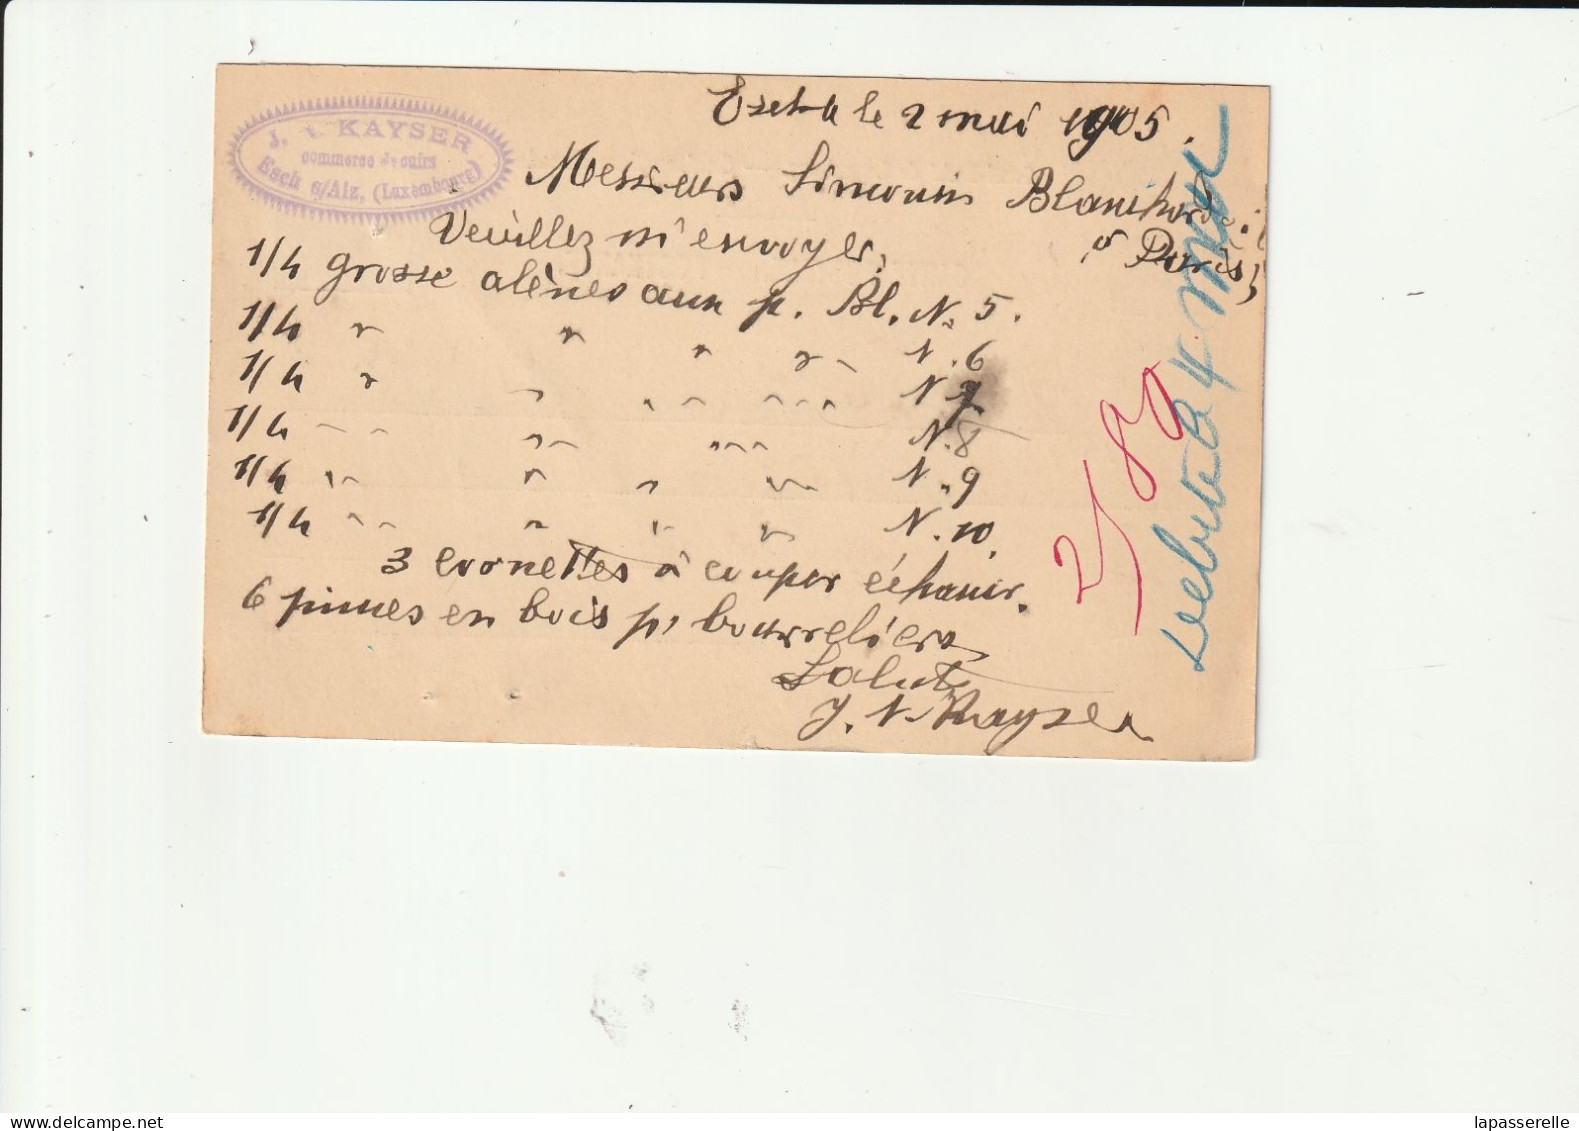 J. N. KAYSER
commerce de cuirs
Esch s/Alz, (Luxembourg)
Esch le 2 mai 1905.
Messieurs Simonin Blanchard
à Paris
Veuillez m'envoyer,
1/4 grosse alènes aux p. Bl. N. 5.
1/4 " " " " N. 6
1/4 " " " " N. 7
1/4 " " " " N. 8
1/4 " " " " N. 9
1/4 " " " " N. 10.
3 cornettes à couper échancr.
6 pinces en bois p. bourreliers
Salut
J. N. Kayser
2/80
Debité 4 Mai
delcampe.net
lapasserelle